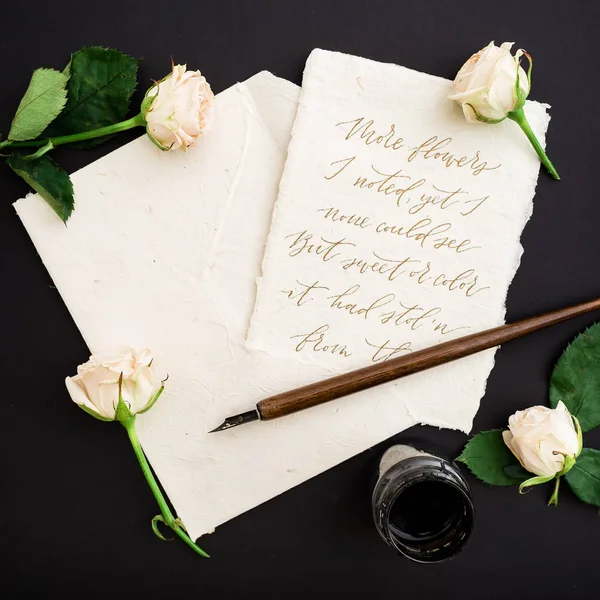 More flowers
I noted, yet I
none could see
But sweet or color
it had stol'n
from